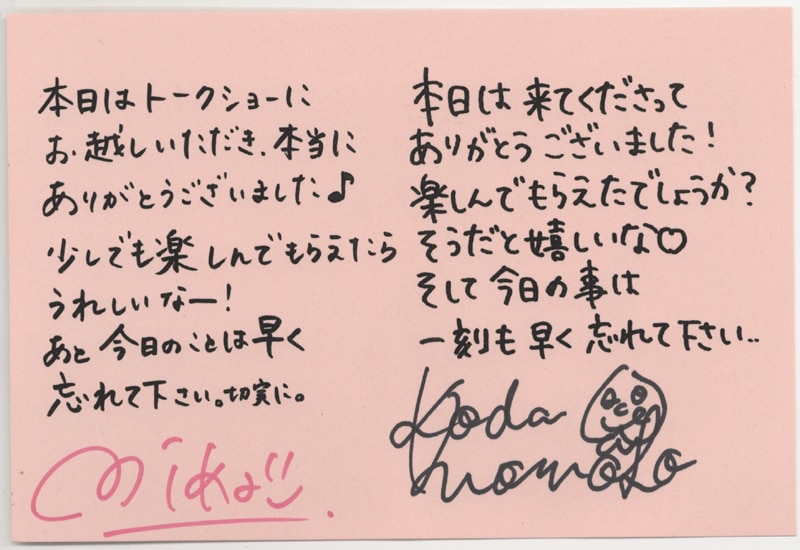 本日はトークショーに
お越しいただき、本当に
ありがとうございました♪
少しでも楽しんでもらえたら
うれしいなー!
あと今日のことは早く
忘れて下さい。切実に。
本日は来てくださって
ありがとうございました!
楽しんでもらえたでしょうか?
そうだと嬉しいな♡
そして今日の事は
一刻も早く忘れて下さい..
Koda
Momoko